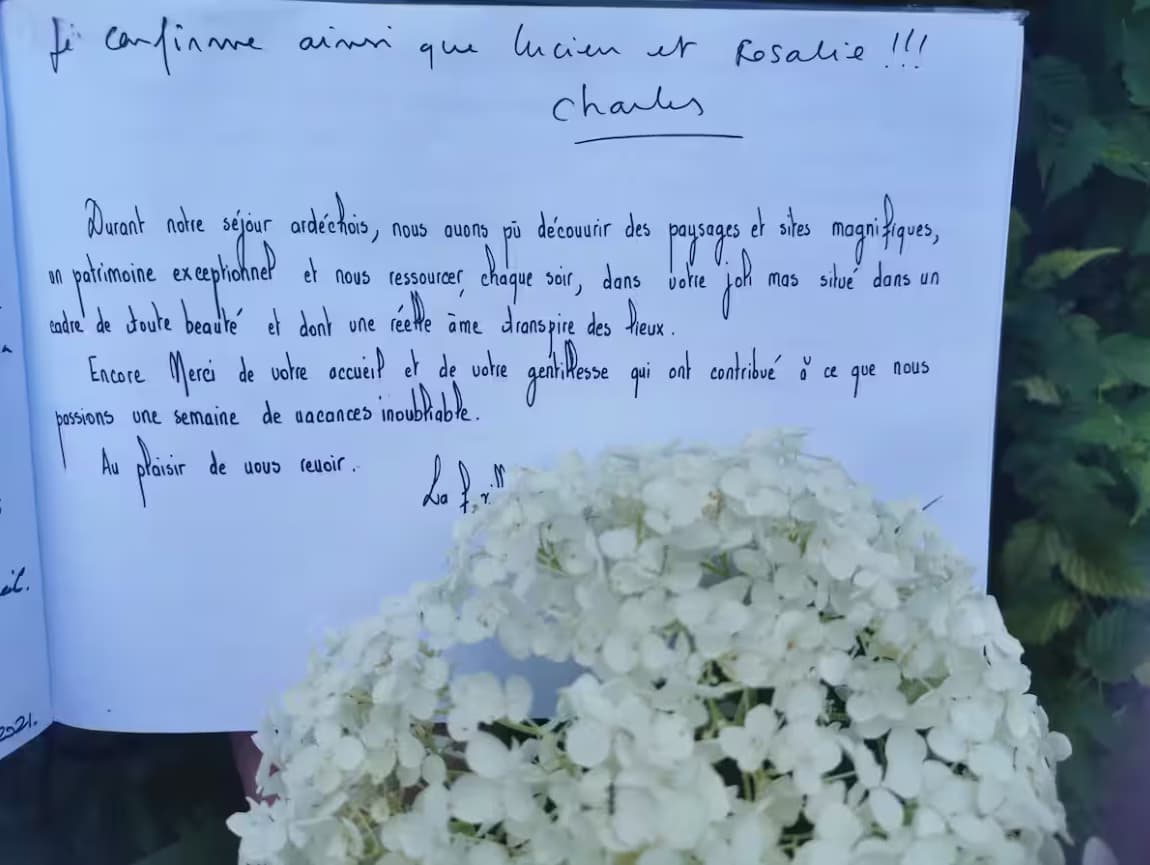 Je confirme ainsi que Lucien et Rosalie !!!
Charles
Durant notre séjour ardéchois, nous avons pû découvrir des paysages et sites magnifiques,
un patrimoine exceptionnel et nous ressourcer, chaque soir, dans votre joli mas situé dans un
cadre de toute beauté et dont une réelle âme transpire des lieux.
Encore Merci de votre accueil et de votre gentillesse qui ont contribué à ce que nous
passions une semaine de vacances inoubliable.
Au plaisir de vous revoir.
La
2021.